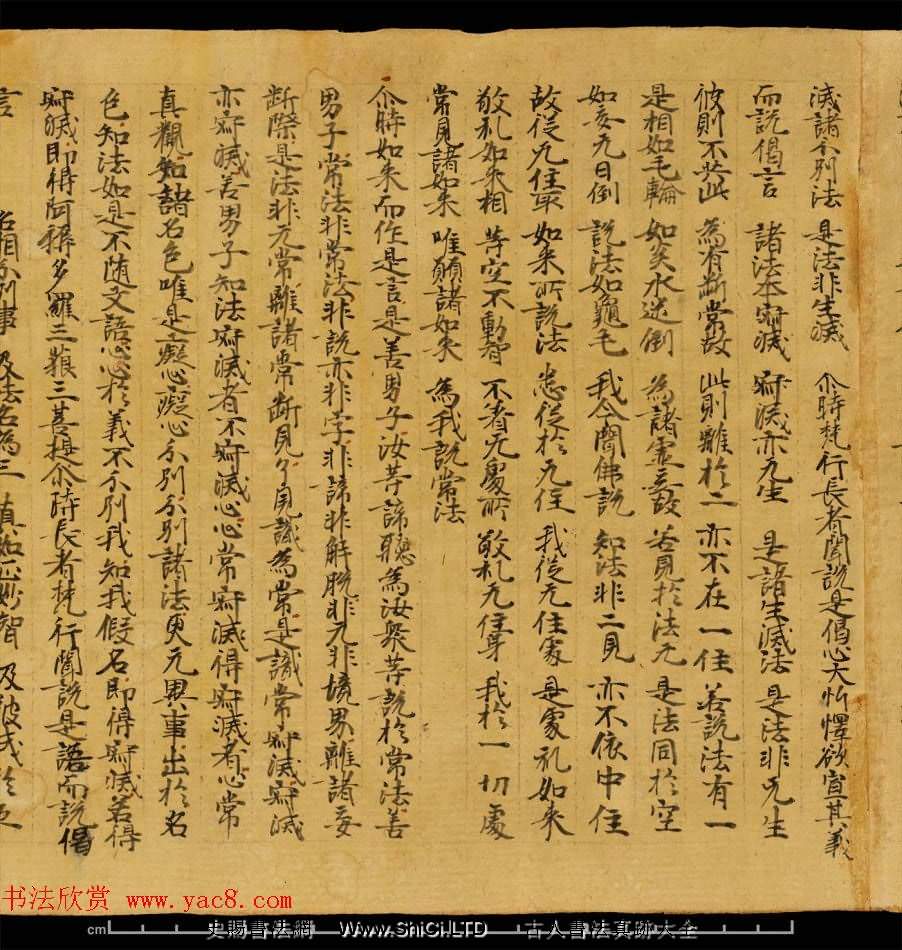 滅諸分別法 是法非生滅 尒時梵行長者聞說是偈心大忻懌欲宣其義
而說偈言 諸法本寂滅 寂滅亦无生 是諸生滅法 是法非无生
彼則不共此 為有斷常故 此則離於二 亦不在一住 若說法有一
是相如毛輪 如炎水迷倒 為諸虛妄故 若見於法无 是法同於空
如盲无日倒 說法如龜毛 我今聞佛說 知法非二見 亦不依中住
故從无住取 如來所說法 悉從於无住 我從无住處 是處礼如來
敬礼如來相 等空不動智 不著无處所 敬礼无住身 我於一切處
常見諸如來 唯願諸如來 為我說常法
尒時如來而作是言是善男子汝等諦聽為汝眾等說於常法善
男子常法非常法非說亦非字非諦非解脫非无非境界離諸妄
斷際是法非无常離諸常斷見了見識為常是識常寂滅寂滅
亦寂滅善男子知法寂滅者不寂滅心心常寂滅得寂滅者心常
真觀知諸名色唯是癡心癡心分別分別諸法更无異事出於名
色知法如是不随文語心心於義不分別我知我假名即得寂滅若得
寂滅即得阿耨多羅三藐三菩提尒時長者梵行聞說是語而說偈
言 名相分別事 及法名為三 真如正妙智 及彼成於五
书法欣赏 www.yac8.com
cm 史賜書法網 www.ShiCi.LTD 古人書法真跡大全